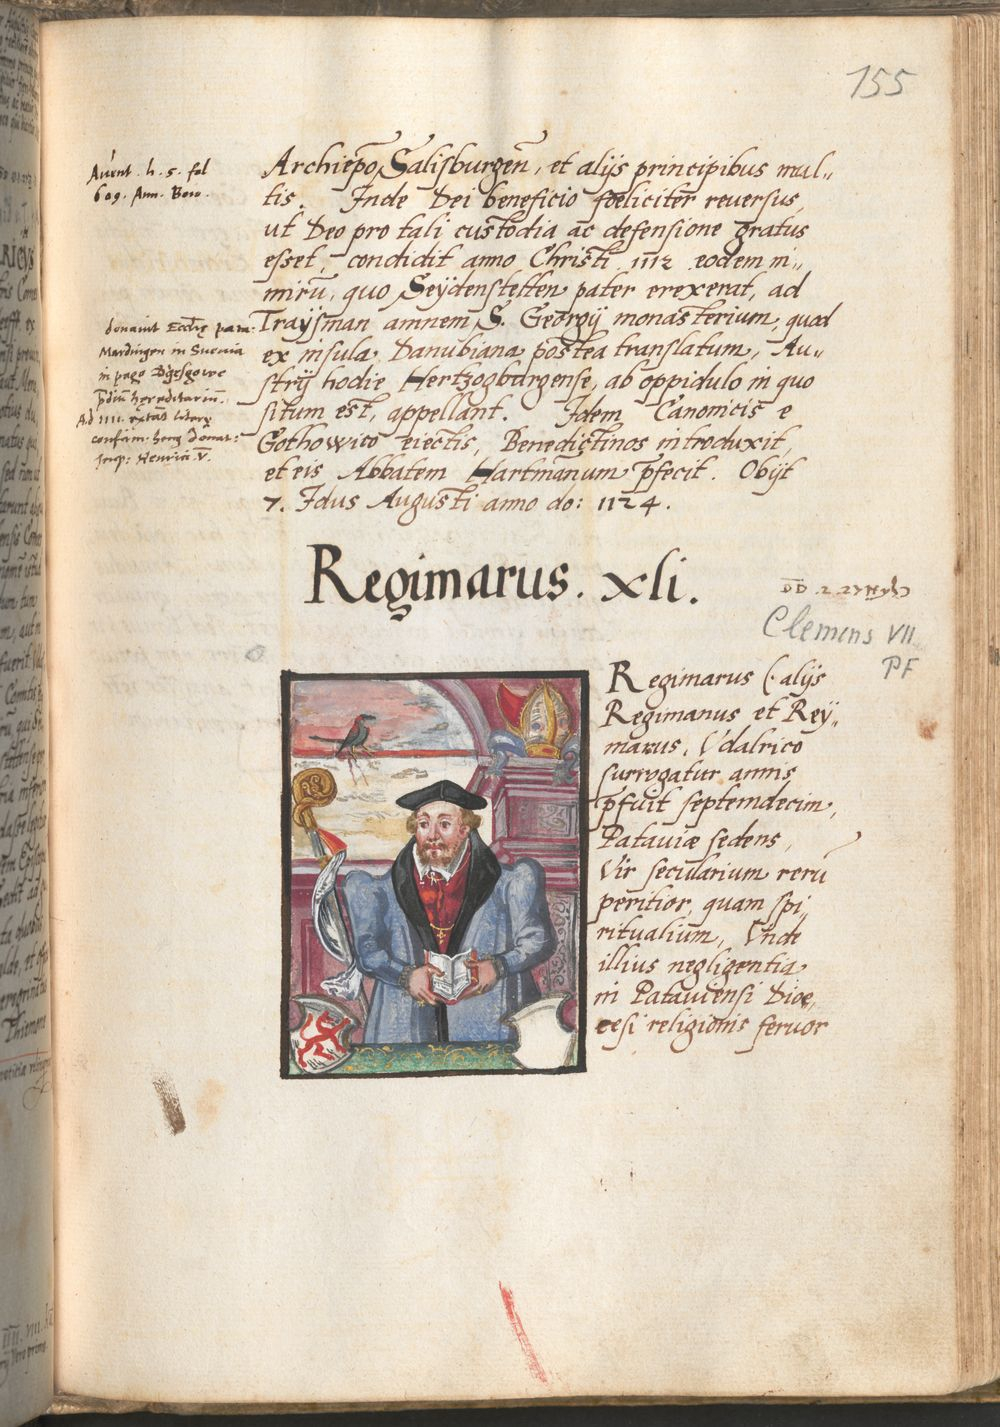 155
Auent. h. 5. fol
609. Ann. Boio.
Archiepõ Salisburgeñ, et alijs principibus mul„
tis. Inde Dei beneficio foeliciter reuersus,
ut Deo pro tali custodia ac defensione gratus
esset, condidit anno Christi 1112 eodem ni„
mirũ, quo Seÿdenstetten pater erexerat, ad
Traÿsman amnem S. Georgij monasterium, quod
ex insula Danubiana postea translatum, Au„
strij hodie Hertzogburgense, ab oppidulo in quo
situm est, appellant. Idem Canonicis e
Gothowico eiectis, Benedictinos introduxit,
et eis Abbatem Hartmanum p̄fecit. Obijt
7. Idus Augusti anno do: 1124.
donauit Eccłę
Mardingen in Sueuia
in pago
hereditariũ.
Ad 1111.
confirm. Donat:
Imp: Henrici V.
Regimarus. xli.
Clemens VII
PF
Regimarus (· alijs
Regimanus et Reÿ„
marus, Vdalrico
surrogatur annis
p̄fuit septemdecim,
Patauiæ sedens,
Vir secularium rerũ
peritior, quam spi„
ritualium, Vnde
illius negligentia
in Patauiensi Dioe„
cesi religionis feruor